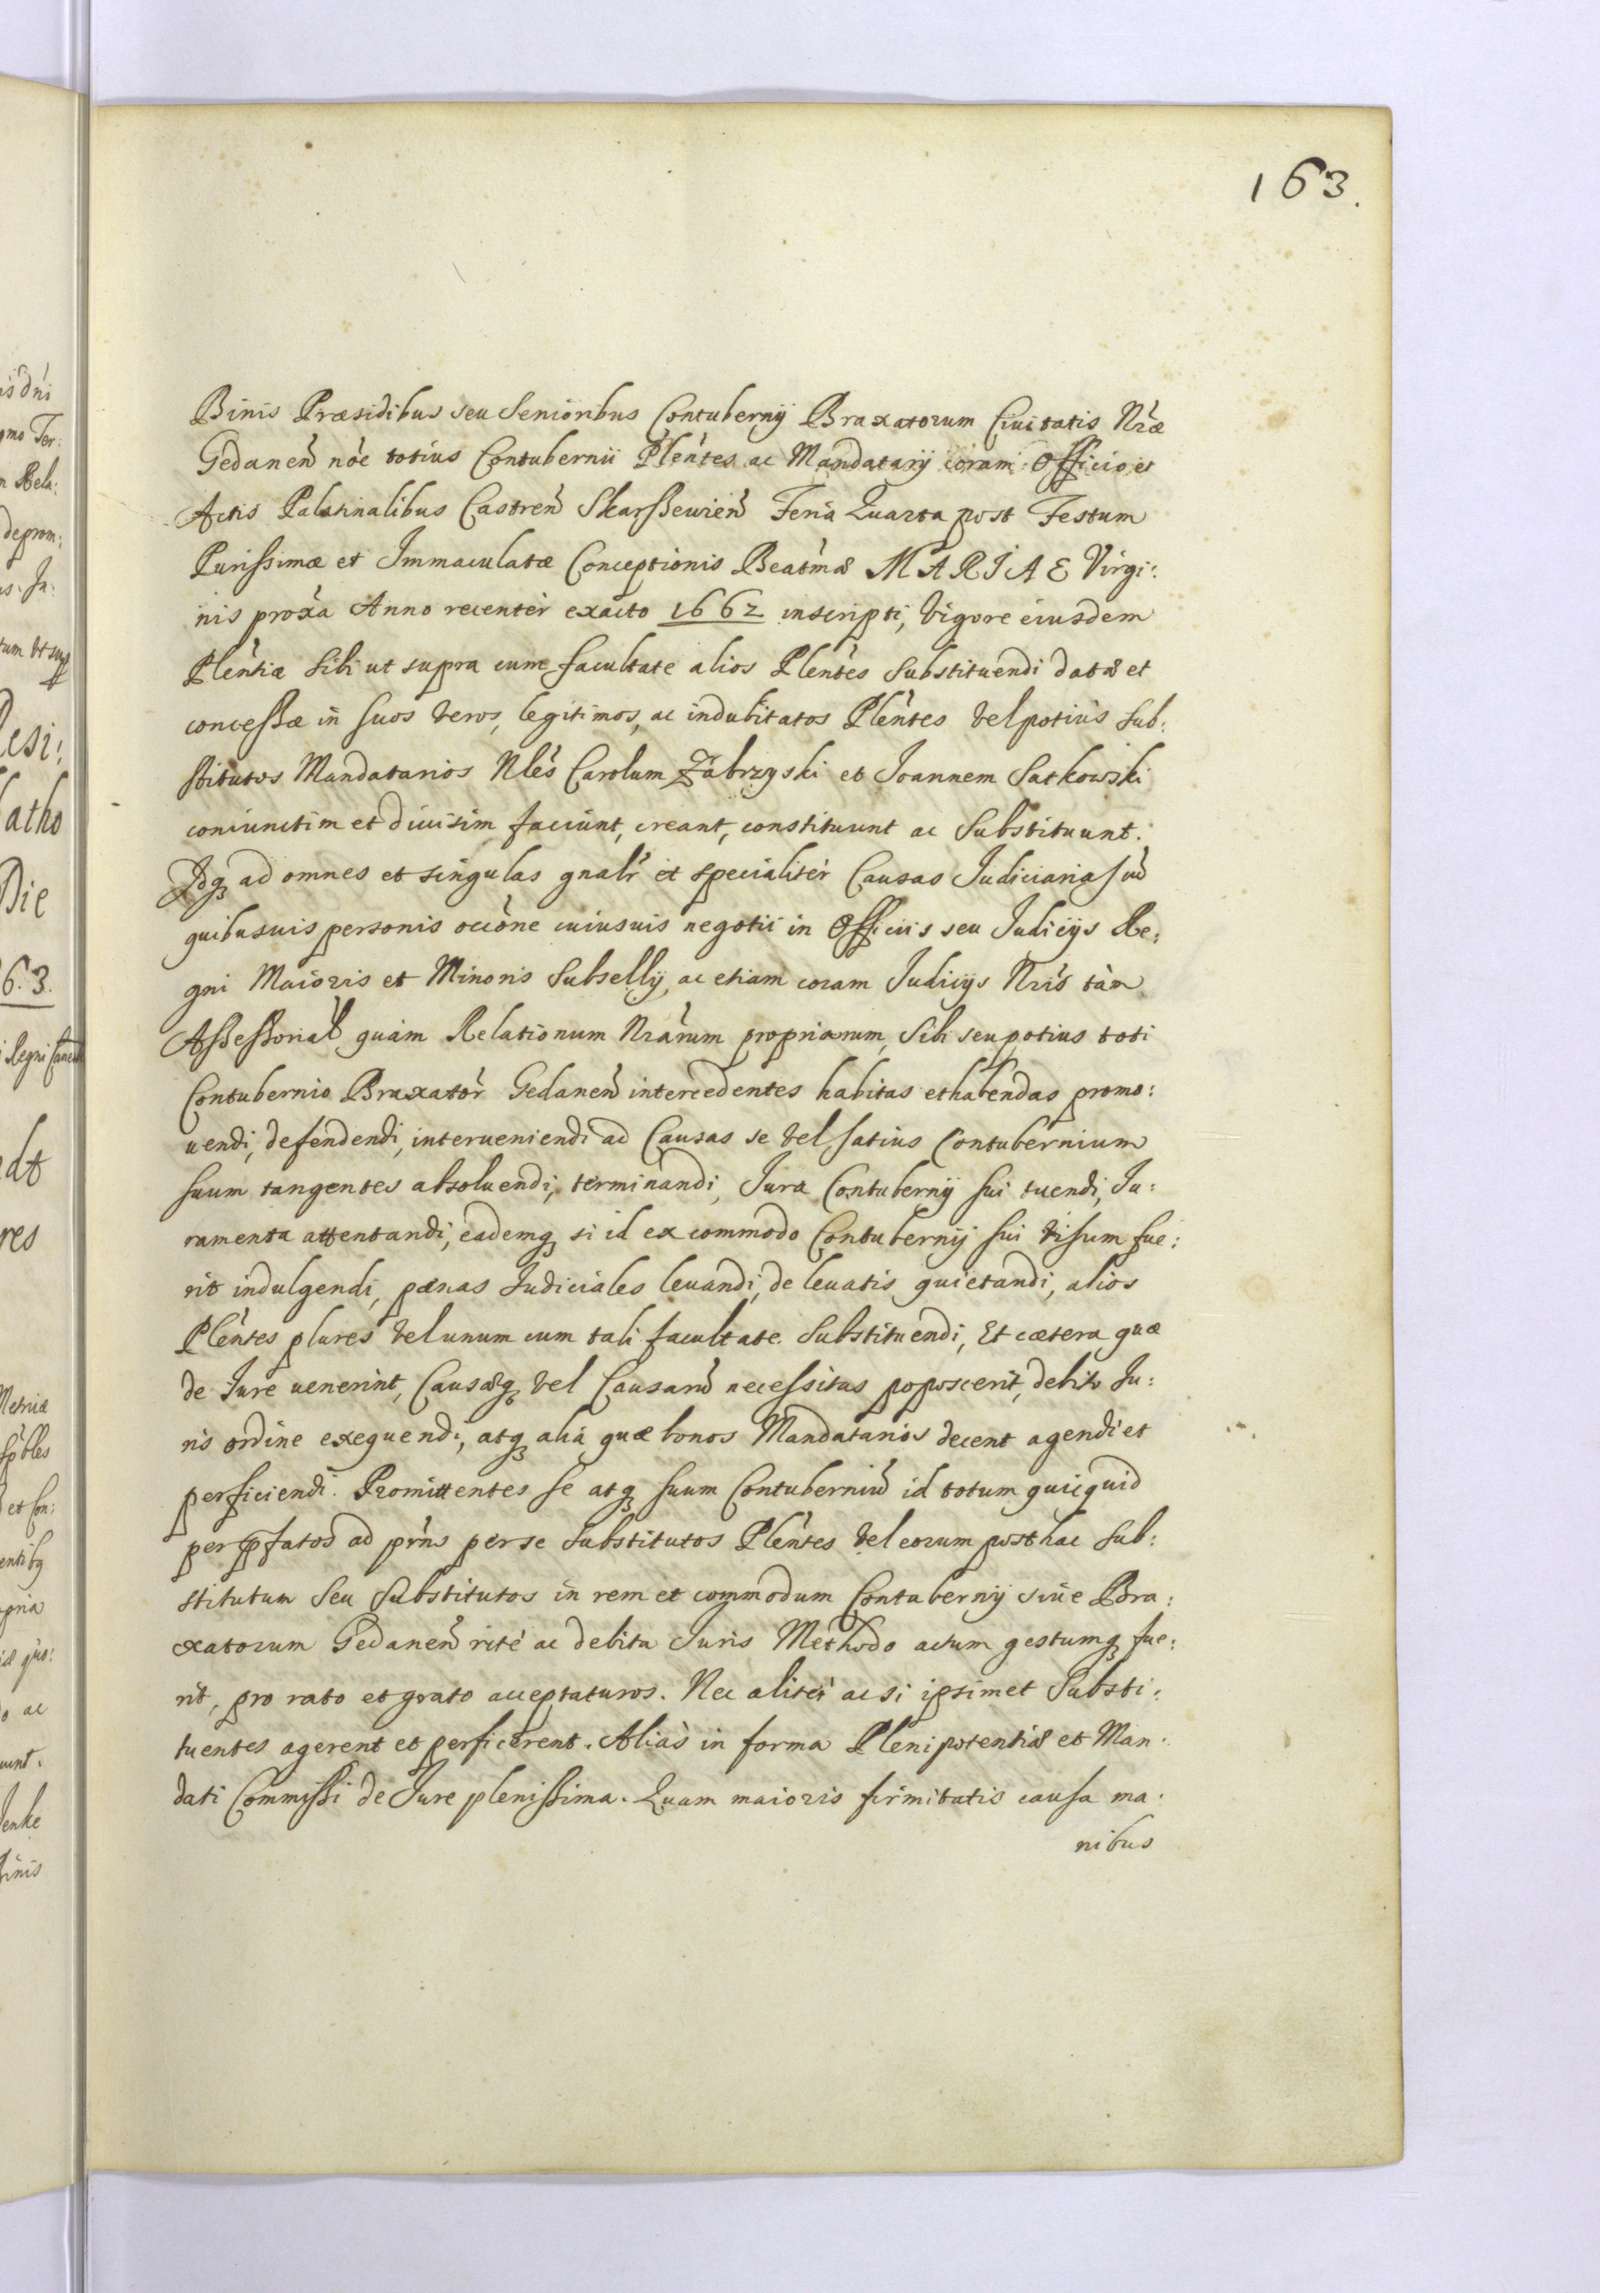 163.
Binis Præsidibus seu Senioribus Contubernij Braxatorum Ciuitatis Nræ
Gedanen̄ nõe totius Contubernii Plẽntes ac Mandatarij coram Officio et
Actis Palatinalibus Castren̄ Skarßewien̄ Feria Quarta post Festum
Purißimæ et Immaculatæ Conceptionis Beatmæ MARIAE Virgi:
nis proxa Anno recenter exacto 1662 inscripti, Vigore eiusdem
Plẽntiæ sibi ut supra cum facultate alios Plẽntes substituendi datæ et
conceßæ in suos veros, legitimos, ac indubitatos Plẽntes vel potius sub:
stitutos Mandatarios Nles Carolum Zabrzyski et Joannem Satkowski
coniunctim et diuisim faciunt, creant, constituunt ac substituunt.
Idq; ad omnes et singulas gnalr et specialiter Causas Judiciarias cū
quibusuis personis occõne cuiusuis negotii in Officiis seu Judicijs Re:
gni Maioris et Minoris Subsellij, ac etiam coram Judicijs Nris tàm
Aßeßorial quàm Relationum Nrarum propriarum, sibi seu potius toti
Contubernio Braxator Gedanen̄ intercedentes habitas et habendas promo:
uendi, defendendi, interueniendi ad Causas se vel satius Contubernium
suum tangentes absoluendi, terminandi, Jura Contubernij sui tuendi, Ju:
ramenta attentandi, eademq; si id ex commodo Contubernij sui visum fue:
rit indulgendi, pænas Judiciales leuandi, de leuatis quietandi, alios
Plẽntes plures vel unum cum tali facultate substituendi, Et cætera quæ
de Jure uenerint, Causæq; vel Causarū necessitas poposcerit, debito Ju:
ris ordine exequendi, atq; alia quæ bonos Mandatarios decent agendi et
perficiendi. Promittentes se atq; suum Contuberniū id totum quicquid
per pfatos ad prñs per se substitutos Plẽntes vel eorum posthac sub:
stitutum seu substitutos in rem et commodum Contubernij siue Bra:
xatorum Gedanen̄ ritè ac debita Juris Methodo actum gestumq; fue:
rit, pro rato et grato acceptaturos. Nec aliter ac si ipsimet substi:
tuentes agerent et perficerent. Aliàs in forma Plenipotentiæ et Man:
dati Commißi de Jure plenißima. Quam maioris firmitatis causa ma:
nibus